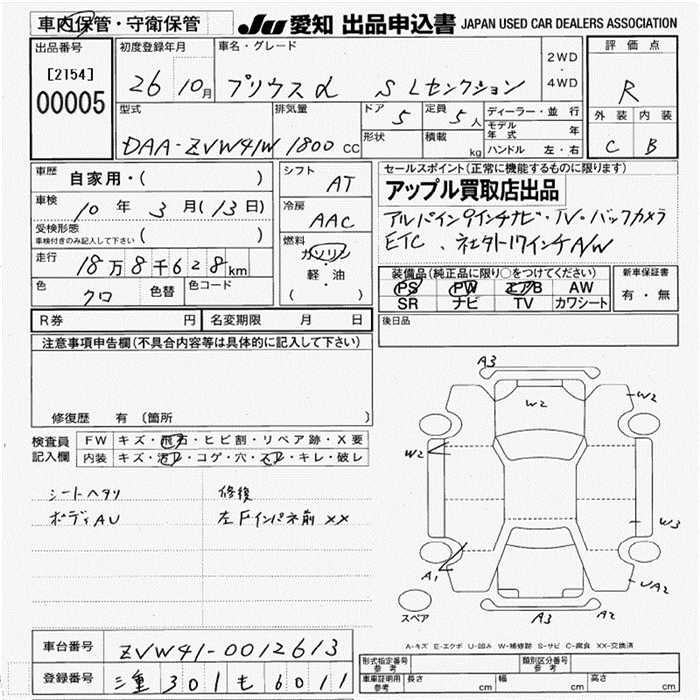 車内保管・守衛保管
JU 愛知 出品申込書 JAPAN USED CAR DEALERS ASSOCIATION
出品番号
[2154]
00005
初度登録年月
26 10月
車名・グレード
プリウスα S Lセンクション
2WD
・
4WD
評価点
R
外装 内装
C B
型式
DAA-ZVW41W
排気量
1800 CC
ドア
5
形状
定員
5人
積載
kg
ディーラー・並行
モデル年式 年
ハンドル 左・右
車歴
自家用・( )
車検
10年 3月(13日)
受検形態
車検付きのみ記入して下さい ( )
走行
18万8千628km
色
クロ
色替
色コード
シフト
AT
冷房
AAC
燃料
ガソリン
・
軽・油
( )
セールスポイント(正常に機能するものに限ります)
アップル買取店出品
アルパイン9インチナビ・TV・バックカメラ
ETC、ネセタト17インチA/W
装備品(純正品に限り○をつけてください)
PS PW エアB AW
SR ナビ TV カワシート
新車保証書
有・無
後日品
R券 円
名変期限 月 日
注意事項申告欄(不具合内容等は具体的に記入して下さい)
修復歴 有 (箇所 )
検査員
記入欄
FW キズ・飛石・ヒビ割・リペア跡・X要
内装 キズ・汚レ・コゲ・穴・スレ・キレ・破レ
シートヘタリ
ボディAU
修復
左Fインパネ前 XX
A3
W2
W2
W2
W3
A1
UA2
A3
A2
スペア
A-キズ E-エクボ U-凹み W-補修跡 S-サビ C-腐食 XX-交換済
車台番号
ZVW41-0012613
登録番号
三重 301 も 6011
形式指定番号
参考
類別区分番号
参考
車庫証明用
参考
長さ cm
幅 cm
高さ cm